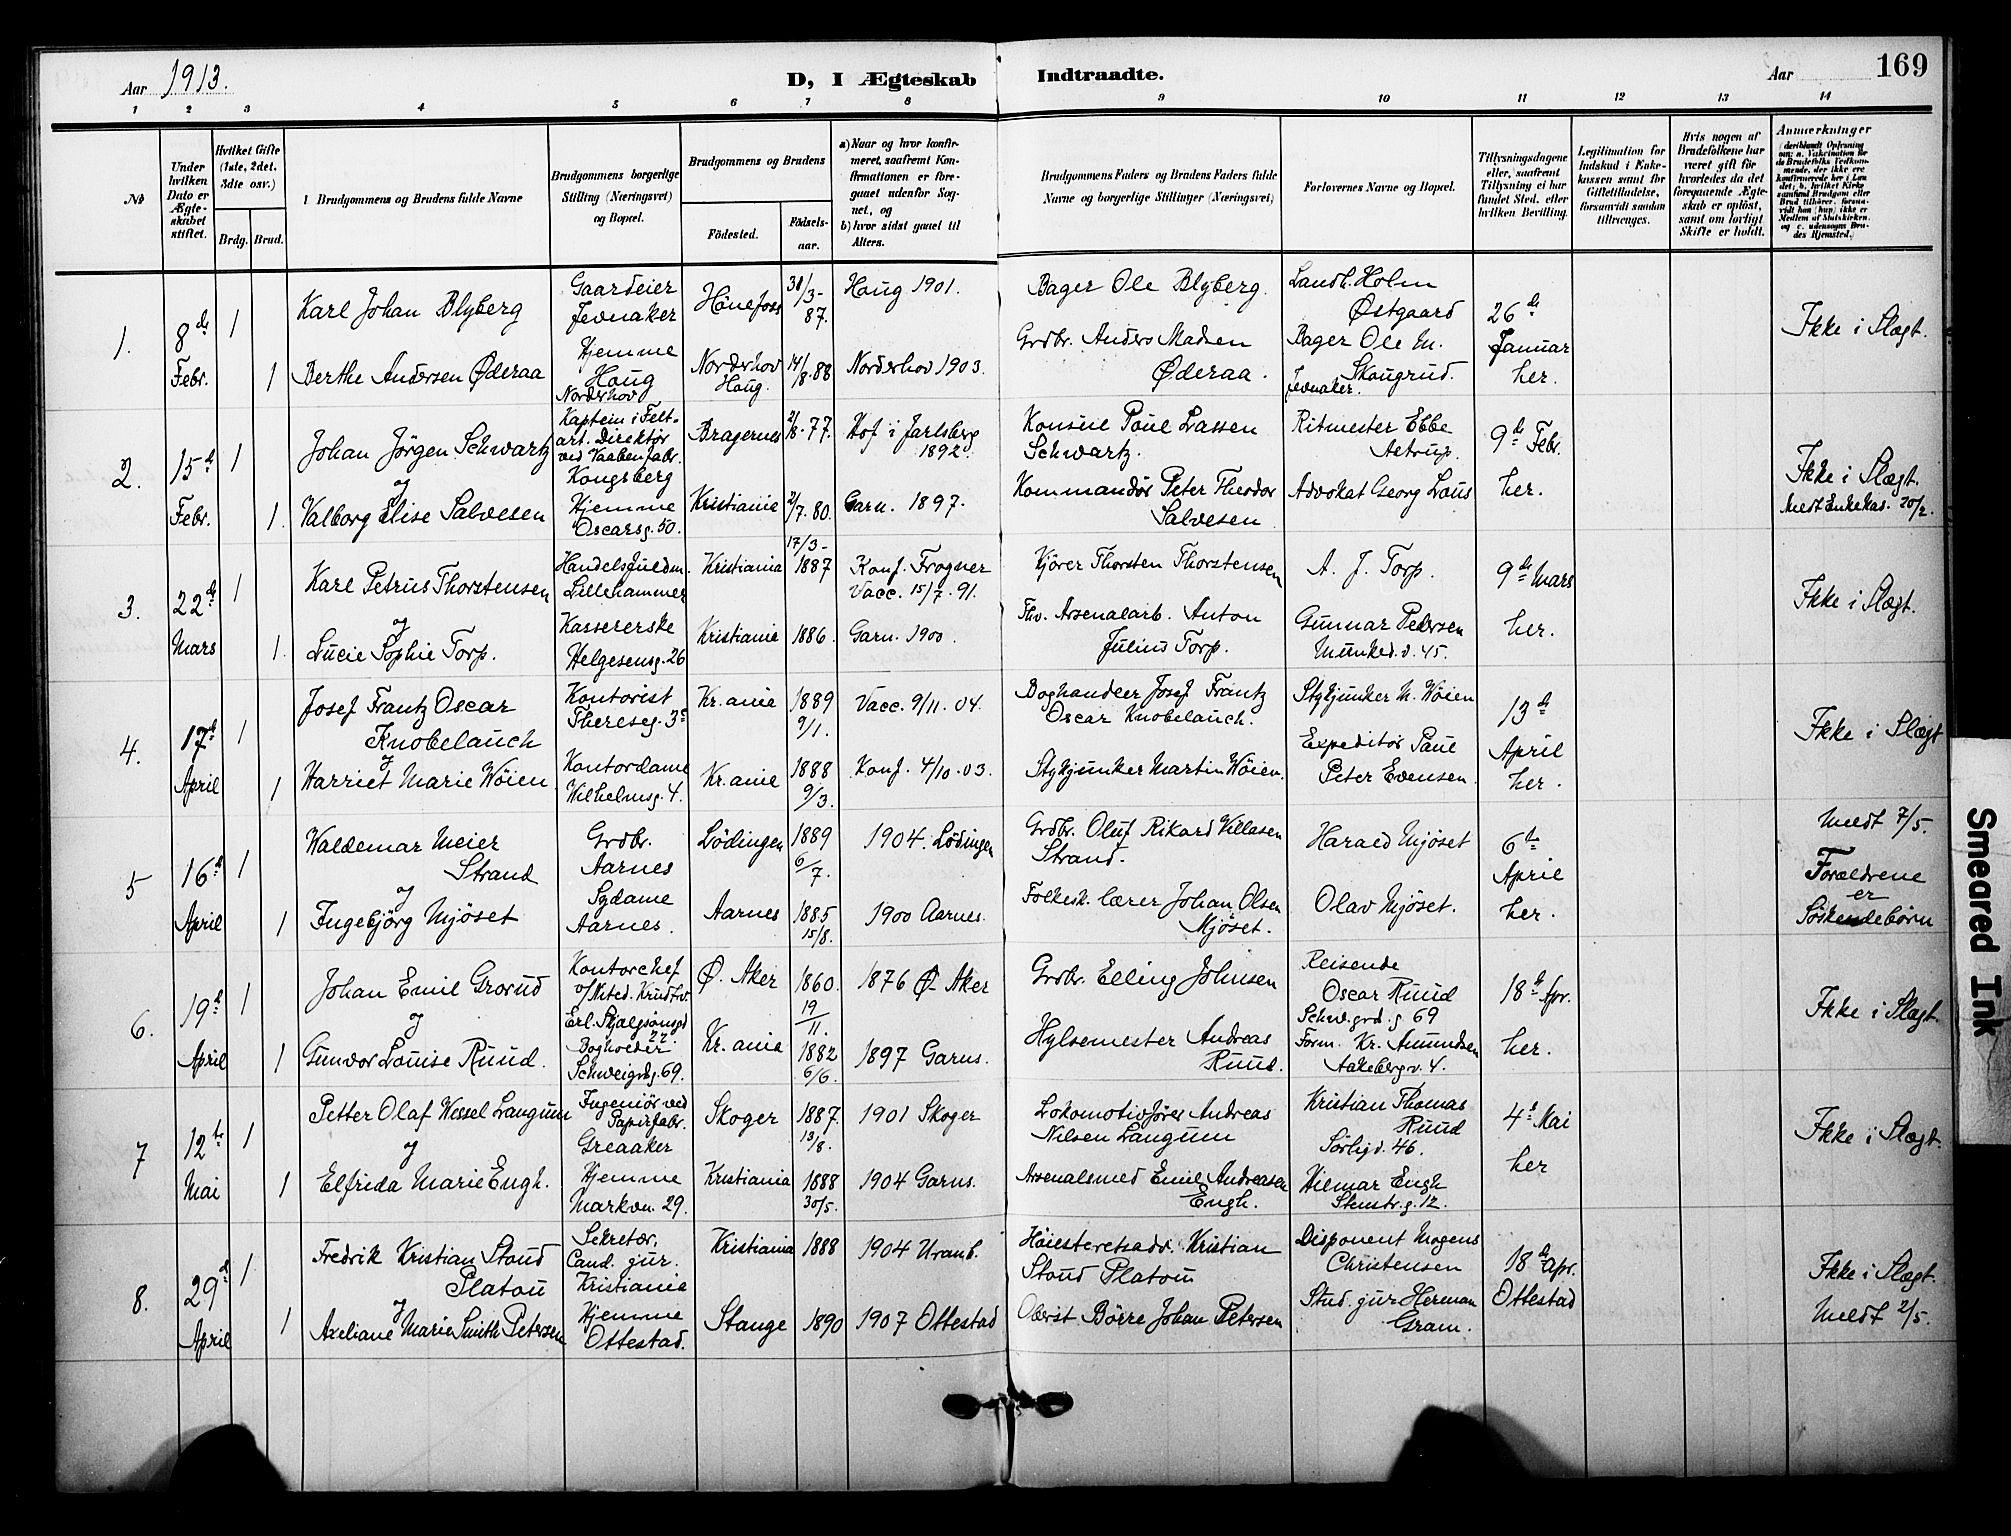 Aar 1913.
D, I Ægteskab Indtraadte.
Aar 169
1 2 3 4 5 6 7 8 9 10 11 12 13 14
No
Under hvilken Dato er Ægteskabet stiftet.
Hvilket Gifte (1ste, 2det, 3die osv.)
Brdg. Brud.
Brudgommens og Brudens fulde Navne
Brudgommens borgerlige Stilling (Næringsvei) og Bopæl.
Brudgommens og Brudens
Födested. Födselsaar.
a) Naar og hvor konfirmeret, saafremt Konfirmationen er foregaaet udenfor Sognet, og
b) hvor sidst gaaet til Alters.
Brudgommens Faders og Brudens Faders fulde Navne og borgerlige Stillinger (Næringsvei)
Forlovernes Navne og Bopæl.
Tillysningsdagene eller, saafremt Tillysning ei har fundet Sted, efter hvilken Bevilling.
Legitimation for Indskud i Enkekassen samt for Giftetilladelse, forsaavidt saadan tiltrænges.
Hvis nogen af Brudefolkene har været gift för hvorledes da det foregaaende Ægteskab er oplöst, samt om lovligt Skifte er holdt.
Anmærkninger (deriblandt Oplysning om: a. Vakcination for de Brudefolks Vedkommende, der ikke ere konfirmerede her i Landet; b. hvilket Kirkesamfund Brudgom eller Brud tilhörer, forsaavidt han (hun) ikke er Medlem af Statskirken, og c. udensogns Brudes Hjemsted.)
1. 8de Febr. 1
Karl Johan Blyberg
Gaardeier Jevnaker
Hönefoss 30/3-87.
Houg 1901.
Bager Ole Blyberg.
Landh. Holm Østgaard
26de Januar her.
Ikke i Slægt.
1 Berthe Andersen Øderaa
Hjemme Houg Norderhov
Norderhov Houg. 14/8-88
Norderhov 1903.
Grdbr. Anders Madsen Øderaa.
Bager Ole M. Skougrud. Jevnaker.
2. 15de Febr. 1
Johan Jörgen Schwartz
og
Kaptein i Feltart. Direktör ved Vaabenfabr. Kongsberg
Bragernes 2/8-77.
Hof i Jarlsberg 1892.
Konsul Poul Lassen Schwartz.
Ritmester Ebbe Astrup.
9de Febr. her.
Ikke i Slægt.
Meldt Enkekas. 20/2.
1. Valborg Elise Salvesen
Hjemme Oscarsg. 50.
Kristiania 2/7.80.
Garn. 1897.
Kommandör Peter Theodor Salvesen
Advokat Georg Lous
3. 22de Mars 1
Karl Petrus Thorstensen
og
Handelsfuldm. Lillehammer
Kristiania 17/3-1887
Konf. Frogner Vacc. 15/7.91.
Kjörer Thorsten Thorstensen
A. J. Torp.
9de Mars her.
Ikke i Slægt.
1. Lucie Sophie Torp.
Kassererske Helgesensg. 26
Kristiania 1886.
Garn. 1900.
Fhv. Arsenalarb. Anton Julius Torp.
Gunnar Pedersen Munked.v. 45.
4. 17de April 1
Josef Frantz Oscar Knobelauch
og
Kontorist Thereseg. 3c
Kr.ania 1889 9/1.
Vacc. 9/11.04.
Boghandler Josef Frantz Oscar Knobelauch.
Stykjunker M. Wöien
13de April her.
Ikke i Slægt
1 Harriet Marie Wöien
Kontordame Wilhelmsg. 4.
Kr.ania 1888 9/3.
Konf. 4/10.03.
Stykjunker Martin Wöien.
Expeditör Paul Peter Evensen.
5 16de April 1
Waldemar Meier Strand
og
Grdbr. Aarnes
Lödingen 1889 6/7.
1904. Lödingen
Grdbr. Oluf Rikard Villasen Strand.
Harald Mjöset
6te April her.
Meldt 7/5.
Forældrene er Söskendebörn
1 Ingebjörg Mjöset
Sydame Aarnes.
Aarnes 1885 15/8.
1900 Aarnes.
Folkesk. lærer Johan Olsen Mjöset.
Olav Mjöset.
6. 19de April 1
Johan Emil Grorud
og
Kontorchef v/Nited. Krudtv. Erl. Skjalgsönsgd 22.
Ø. Aker 1860. 19/11.
1876 Ø. Aker
Grdbr. Elling Johnsen
Reisende Oscar Ruud Schw.grd.g 69
18de Apr. her.
Ikke i Slægt.
1 Gunvor Louise Ruud.
Bogholder Schweigrdg. 69.
Kr.ania 1882 6/6.
1897 Garns.
Hylsemester Andreas Ruud.
Form. Kr. Amundsen Aakebergv. 4.
7 12te Mai 1
Petter Olaf Wessel Langum
og
Ingeniör ved Papirfabr. Greaaker
Skoger 1887. 13/8.
1901 Skoger
Lokomotivförer Andreas Nilsen Langum
Kristian Thomas Ruud Sörligd. 46.
4de Mai her
Ikke i Slægt.
1 Elfrida Marie Engh.
Hjemme Markvn. 29.
Kristiania 1888 30/5.
1904 Garns.
Arsenalsmed Emil Andreasen Engh.
Hilmar Engh Stenstr.g. 12.
8. 29de April 1
Fredrik Kristian Stoud Platou
og
Sekretær, Cand. jur. Kristiania
Kristiania 1888
1904 Uranb.
Höiesteretsadv. Kristian Stoud Platou
Disponent Mogens Christensen
18de Apr. Ottestad
Ikke i Slægt.
Meldt 2/5.
1 Axeliane Marie Smith Petersen
Hjemme Ottestad.
Stange 1890
1907 Ottestad
Oberst Börre Johan Petersen
Stud. jur Herman Gram.
Smeared Ink